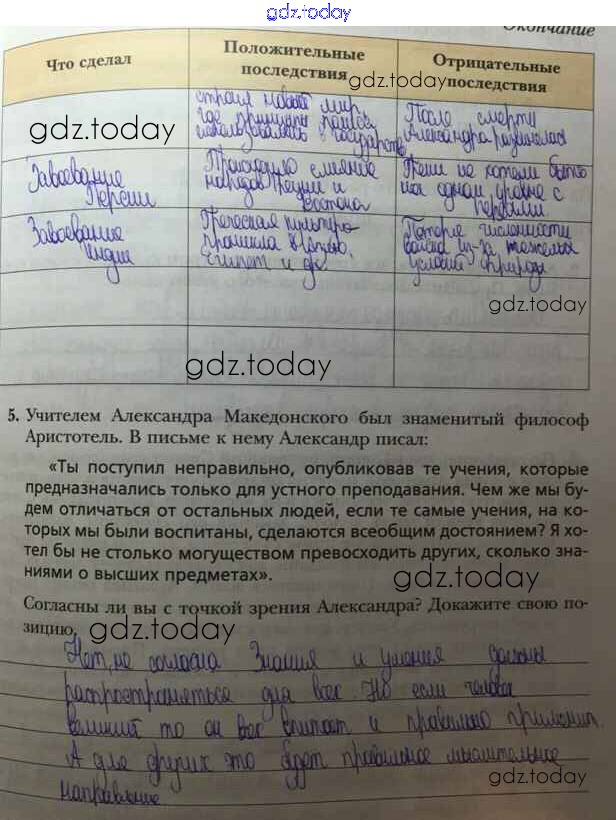 gdz.today
Окончание
Что сделал
Положительные последствия
Отрицательные последствия
gdz.today
строил новый мир,
где принципы
использовались в государств
После смерти
Александра
gdz.today
Завоевание
Персии
Произошло слияние
народов Греции и
Востока
Греки не хотели быть
на одном уровне с
Завоевание
Индии
Греческая культура
проникла в
Египет и др.
Потеря численности
войска из-за тяжелых
условий природы
gdz.today
gdz.today
5. Учителем Александра Македонского был знаменитый философ
Аристотель. В письме к нему Александр писал:
«Ты поступил неправильно, опубликовав те учения, которые
предназначались только для устного преподавания. Чем же мы бу-
дем отличаться от остальных людей, если те самые учения, на ко-
торых мы были воспитаны, сделаются всеобщим достоянием? Я хо-
тел бы не столько могуществом превосходить других, сколько зна-
ниями о высших предметах».
gdz.today
Согласны ли вы с точкой зрения Александра? Докажите свою по-
зицию.
gdz.today
Нет, не согласна Знания и учения должны
распространяться для всех. Но если человек
великий то он все впитает и правильно применит.
А для других это будет правильное мыслительное
направление
gdz.today